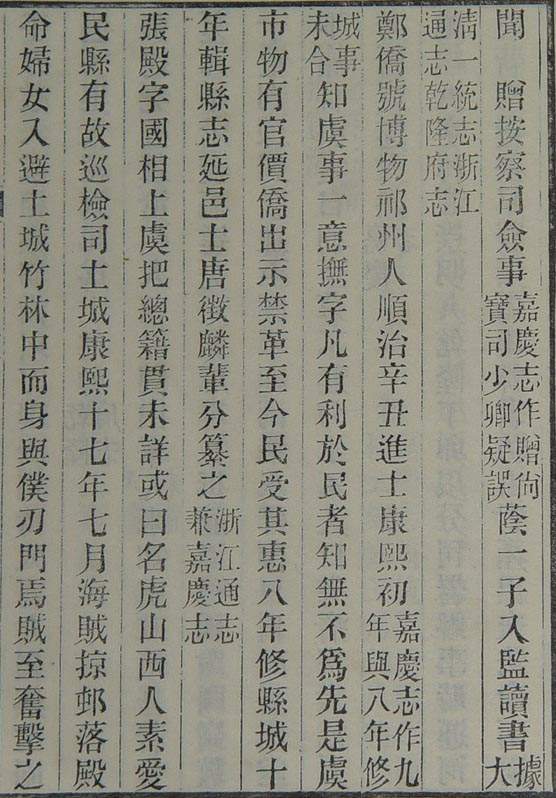 聞　贈按察司僉事嘉慶志作贈尙寶司少卿疑誤蔭一子入監讀書據大
淸一統志浙江通志乾隆府志
鄭僑號博物祁州人順治辛丑進士康熙初嘉慶志作九年與八年修
城事未合知虞事一意撫字凡有利於民者知無不爲先是虞
市物有官價僑出示禁革至今民受其惠八年修縣城十
年輯縣志延邑士唐徵麟輩分纂之浙江通志兼嘉慶志
張殿字國相上虞把總籍貫未詳或曰名虎山西人素愛
民縣有故巡檢司土城康熙十七年七月海賊掠邨落殿
命婦女入避土城竹林中而身與僕刃門焉賊至奮擊之